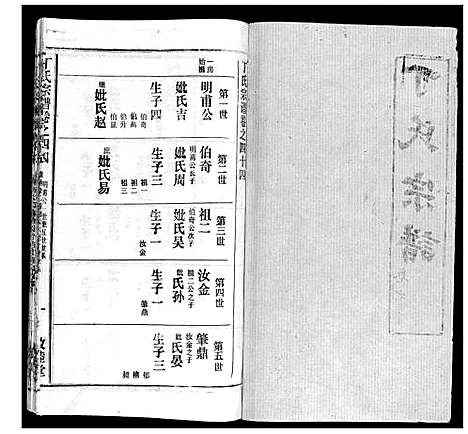 丁氏宗譜
丁氏宗譜卷之四十四
一房
始祖
第一世
明甫公
妣氏吉
生子四
伯奇
伯禹
伯升
伯昆
繼
妣氏趙
第二世
伯奇
明甫公長子
妣氏周
生子三
祖一
祖二
祖三
庶
妣氏易
第三世
祖二
伯奇公次子
妣氏吴
生子一
汝金
第四世
汝金
祖二公之子
妣氏孫
生子一
肇鼎
第五世
肇鼎
汝金之子
妣氏晏
生子三
丁氏宗譜卷之四十四
一
敦睦堂